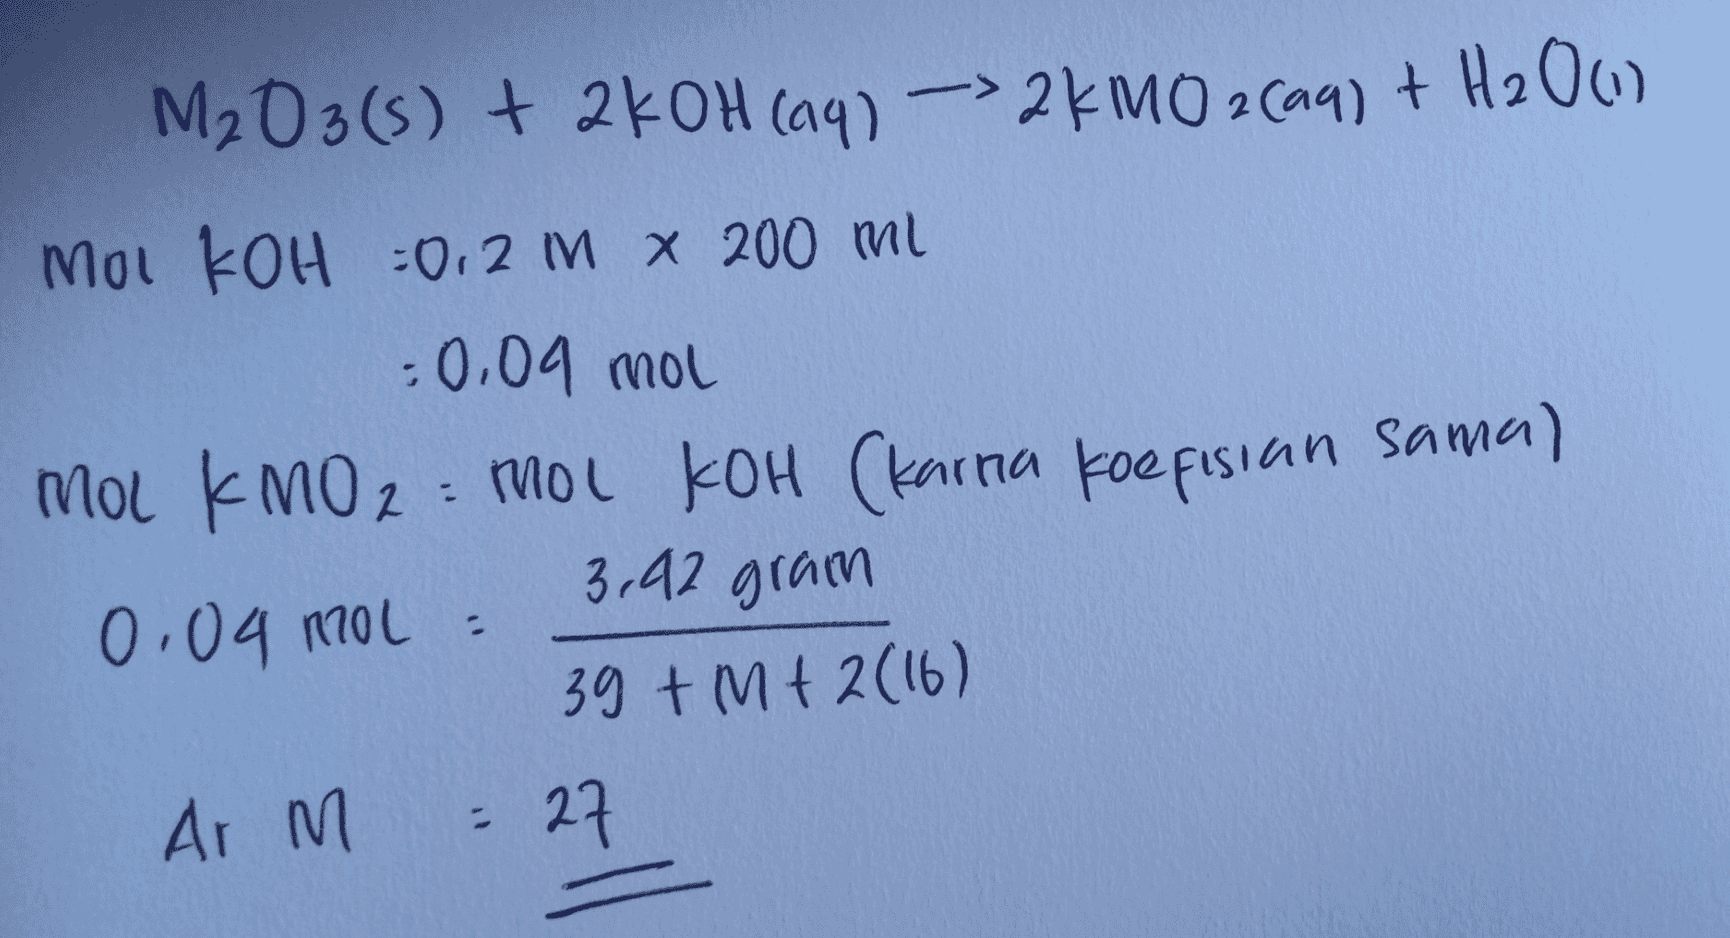 M2O3(s) + 2KOH(aq) -> 2KMO2(aq) + H2O(l)
Mol KOH = 0,2 M x 200 ml
= 0,04 mol
Mol KMO2 = mol KOH (karna koefisian sama)
0,04 mol = 3,42 gram
39 + M + 2(16)
Ar M = 27